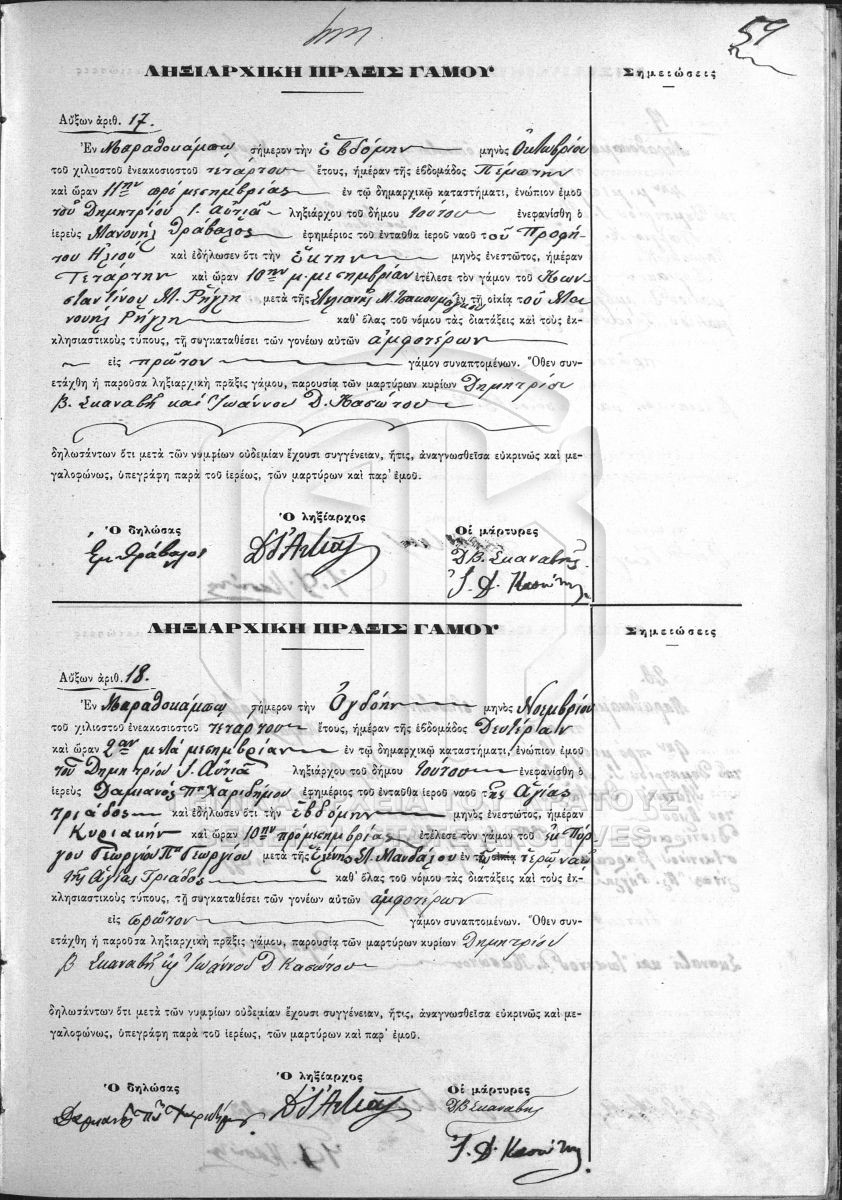 59
ΛΗΞΙΑΡΧΙΚΗ ΠΡΑΞΙΣ ΓΑΜΟΥ
Σημειώσεις
Αὔξων ἀριθ. 17.
Ἐν Μαραθοκάμπῳ σήμερον τὴν ἑβδόμην μηνὸς Ὀκτωβρίου
τοῦ χιλιοστοῦ ἐνεακοσιοστοῦ τετάρτου ἔτους, ἡμέραν τῆς ἑβδομάδος Πέμπτην
καὶ ὥραν 11ην πρὸ μεσημβρίας ἐν τῷ δημαρχικῷ καταστήματι, ἐνώπιον ἐμοῦ
τοῦ Δημητρίου Ι. Αὐτιᾶ ληξιάρχου τοῦ δήμου τούτου ἐνεφανίσθη ὁ
ἱερεὺς Μανουὴλ Θράβαλος ἐφημέριος τοῦ ἐνταῦθα ἱεροῦ ναοῦ τοῦ Προφή-
του Ἠλιού καὶ ἐδήλωσεν ὅτι τὴν ἕκτην μηνὸς ἐνεστῶτος, ἡμέραν
Τετάρτην καὶ ὥραν 10ην μ. μεσημβρίαν ἐτέλεσε τὸν γάμον τοῦ Κων-
σταντίνου Μ. Ρήγλη μετὰ τῆς Στυλιανῆς Μ. ἐν τῇ οἰκίᾳ τοῦ Μα-
νουὴλ Ρήγλη καθ' ὅλας τοῦ νόμου τὰς διατάξεις καὶ τοὺς ἐκ-
κλησιαστικοὺς τύπους, τῇ συγκαταθέσει τῶν γονέων αὐτῶν ἀμφοτέρων
εἰς πρῶτον γάμον συναπτομένων. Ὅθεν συν-
ετάχθη ἡ παροῦσα ληξιαρχικὴ πρᾶξις γάμου, παρουσίᾳ τῶν μαρτύρων κυρίων Δημητρίου
Β. Σκαναβῆ καὶ Ἰωάννου Δ. Κασώτου
δηλωσάντων ὅτι μετὰ τῶν νυμφίων οὐδεμίαν ἔχουσι συγγένειαν, ἥτις, ἀναγνωσθεῖσα εὐκρινῶς καὶ με-
γαλοφώνως, ὑπεγράφη παρὰ τοῦ ἱερέως, τῶν μαρτύρων καὶ παρ' ἐμοῦ.
Ὁ δηλώσας
Ὁ ληξίαρχος
Οἱ μάρτυρες
Εμ Θράβαλος
Δ Ι Αὐτιᾶς
Δ Β. Σκαναβῆς
Ἰ. Δ. Κασώτης
ΛΗΞΙΑΡΧΙΚΗ ΠΡΑΞΙΣ ΓΑΜΟΥ
Σημειώσεις
Αὔξων ἀριθ. 18.
Ἐν Μαραθοκάμπῳ σήμερον τὴν Ὀγδόην μηνὸς Νοεμβρίου
τοῦ χιλιοστοῦ ἐνεακοσιοστοῦ τετάρτου ἔτους, ἡμέραν τῆς ἑβδομάδος Δευτέραν
καὶ ὥραν 2αν μετὰ μεσημβρίαν ἐν τῷ δημαρχικῷ καταστήματι, ἐνώπιον ἐμοῦ
τοῦ Δημητρίου Ι. Αὐτιᾶ ληξιάρχου τοῦ δήμου τούτου ἐνεφανίσθη ὁ
ἱερεὺς Δαμιανὸς Πα Χαριδήμου ἐφημέριος τοῦ ἐνταῦθα ἱεροῦ ναοῦ τῆς Ἁγίας
Τριάδος καὶ ἐδήλωσεν ὅτι τὴν ἑβδόμην μηνὸς ἐνεστῶτος, ἡμέραν
Κυριακὴν καὶ ὥραν 10ην πρὸ μεσημβρίας ἐτέλεσε τὸν γάμον τοῦ ἐκ Πύρ-
γου Γεωργίου Πα Γεωργίου μετὰ τῆς Ἑλένης Μ. Μανδάλου ἐν τῷ ἱερῷ ναῷ
τῆς Ἁγίας Τριάδος καθ' ὅλας τοῦ νόμου τὰς διατάξεις καὶ τοὺς ἐκ-
κλησιαστικοὺς τύπους, τῇ συγκαταθέσει τῶν γονέων αὐτῶν ἀμφοτέρων
εἰς πρῶτον γάμον συναπτομένων. Ὅθεν συν-
ετάχθη ἡ παροῦσα ληξιαρχικὴ πρᾶξις γάμου, παρουσίᾳ τῶν μαρτύρων κυρίων Δημητρίου
Β Σκαναβῆ κ Ἰωάννου Δ Κασώτου
δηλωσάντων ὅτι μετὰ τῶν νυμφίων οὐδεμίαν ἔχουσι συγγένειαν, ἥτις, ἀναγνωσθεῖσα εὐκρινῶς καὶ με-
γαλοφώνως, ὑπεγράφη παρὰ τοῦ ἱερέως, τῶν μαρτύρων καὶ παρ' ἐμοῦ.
Ὁ δηλώσας
Ὁ ληξίαρχος
Οἱ μάρτυρες
Δαμιανὸς Πα Χαριδήμου
Δ Ι Αὐτιᾶς
Δ Β Σκαναβῆς
Ἰ. Δ. Κασώτης